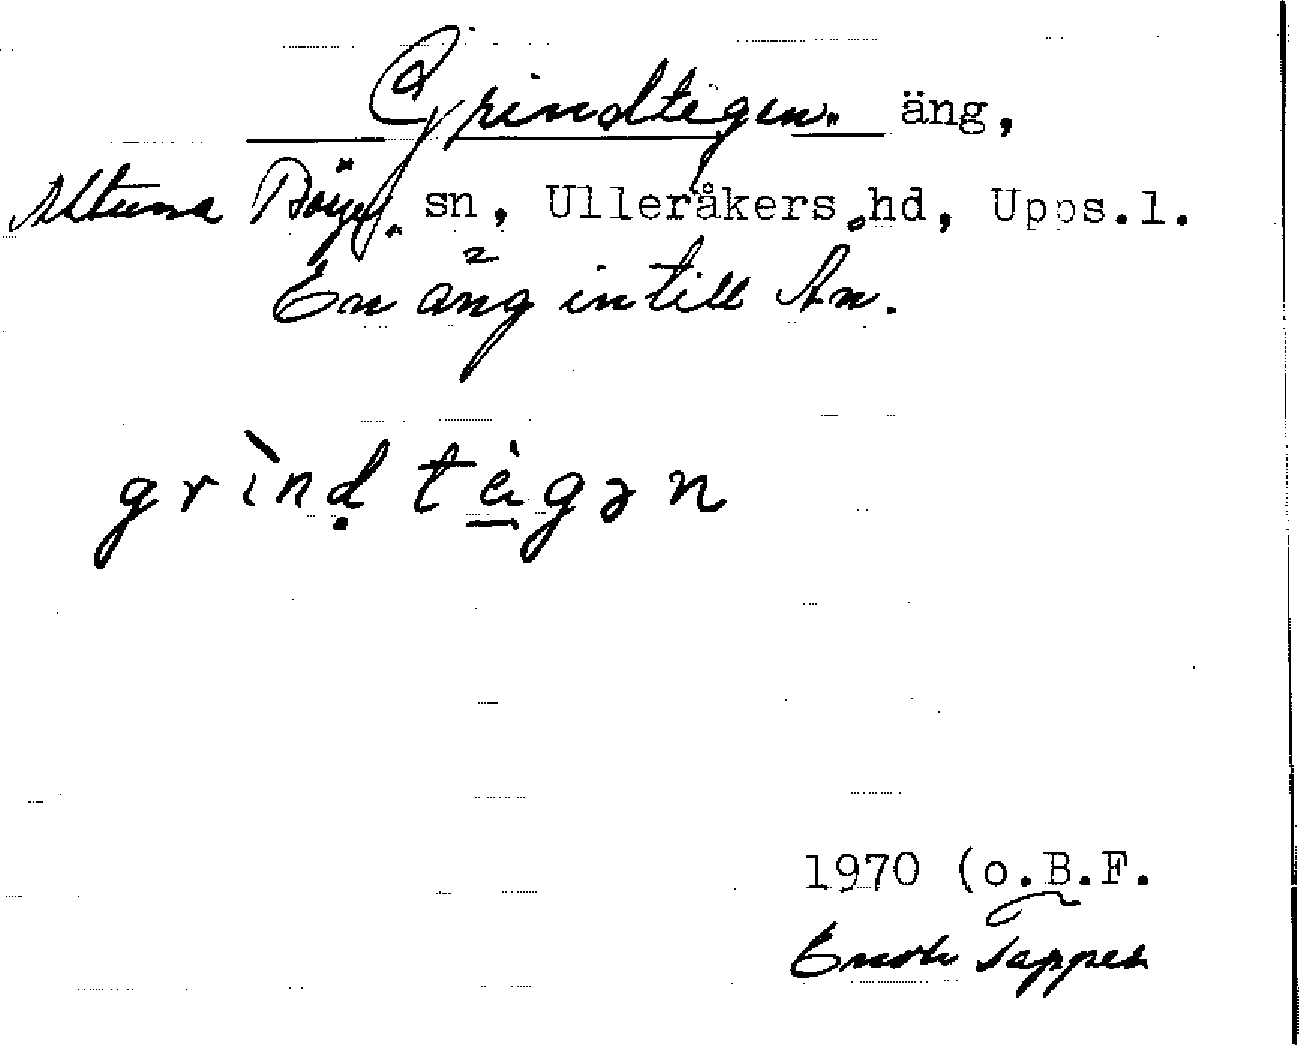 Grindtegen. äng,
Altuna Börje. sn, Ulleråkers hd, Upps.l.
En äng intill Ån.
grìnḍ tè̱gən
1970 (o.B.F.
Enok Tappen